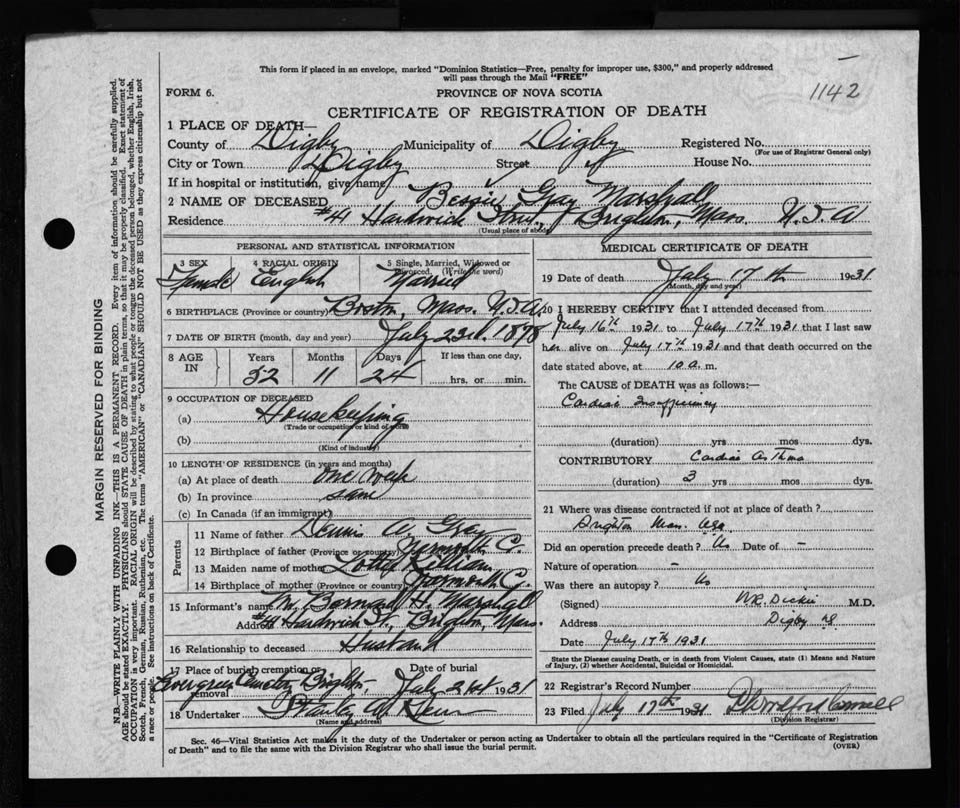 This form if placed in an envelope, marked "Dominion Statistics—Free, penalty for improper use, $300," and properly addressed
will pass through the Mail "FREE"
1142
FORM 6.
PROVINCE OF NOVA SCOTIA
CERTIFICATE OF REGISTRATION OF DEATH
1 PLACE OF DEATH—
County of Digby Municipality of Digby Registered No.
(For use of Registrar General only)
City or Town Digby Street House No.
If in hospital or institution, give name
2 NAME OF DECEASED Bessie Gray Marshall
Residence #41 Hardwich Street, Brighton, Mass. U.S.A
(Usual place of abode)
PERSONAL AND STATISTICAL INFORMATION
3 SEX Female
4 RACIAL ORIGIN English
5 Single, Married, Widowed or Divorced. (Write the word) Married
6 BIRTHPLACE (Province or country) Boston, Mass. U.S.A.
7 DATE OF BIRTH (month, day and year) July 23rd. 1878
8 AGE IN
Years Months Days If less than one day,
52 11 24 hrs. or min.
9 OCCUPATION OF DECEASED
(a) Housekeeping
(Trade or occupation or kind of work)
(b)
(Kind of industry)
10 LENGTH OF RESIDENCE (in years and months)
(a) At place of death one week
(b) In province same
(c) In Canada (if an immigrant)
Parents
11 Name of father Dennis W. Gray
12 Birthplace of father (Province or country) Yarmouth C.
13 Maiden name of mother Lottie Killiam
14 Birthplace of mother (Province or country) Yarmouth C.
15 Informant's name Mr. Bernard H. Marshall
Address #41 Hardwich St., Brighton, Mass.
16 Relationship to deceased Husband
17 Place of burial cremation or removal Evergreen Cemetery Brighton,
Date of burial July 21st 1931
18 Undertaker Stanley
(Name and address)
MEDICAL CERTIFICATE OF DEATH
19 Date of death July 17th 1931
(Month, day and year)
20 I HEREBY CERTIFY that I attended deceased from
July 16th 1931 to July 17th 1931 that I last saw
her alive on July 17th 1931 and that death occurred on the
date stated above, at 10 a. m.
The CAUSE of DEATH was as follows:—
Cardiac Insufficiency
(duration) yrs mos dys.
CONTRIBUTORY Cardiac asthma
(duration) 3 yrs mos dys.
21 Where was disease contracted if not at place of death?
Brighton Mass. USA
Did an operation precede death? No Date of –
Nature of operation –
Was there an autopsy? No
(Signed) W.R. Dickie M.D.
Address Digby NS
Date July 17th 1931
State the Disease causing Death, or in death from Violent Causes, state (1) Means and Nature
of Injury, (2) whether Accidental, Suicidal or Homicidal.
22 Registrar's Record Number
23 Filed July 17th 1931
(Division Registrar)
Sec. 46—Vital Statistics Act makes it the duty of the Undertaker or person acting as Undertaker to obtain all the particulars required in the "Certificate of Registration
of Death" and to file same with the Division Registrar who shall issue the burial permit.
(OVER)
MARGIN RESERVED FOR BINDING
N.B.—WRITE PLAINLY WITH UNFADING INK—THIS IS A PERMANENT RECORD. Every item of information should be carefully supplied.
AGE should be stated EXACTLY. PHYSICIANS should STATE CAUSE OF DEATH in plain terms, so that it may be properly classified. Exact statement of
OCCUPATION is very important. RACIAL ORIGIN will be described by stating to what people or tongue the deceased person belonged, whether English, Irish,
Scotch, French, German, Russian, Ruthenian, etc. The terms "AMERICAN" or "CANADIAN" SHOULD NOT BE USED as they express citizenship but not
a race or people. See instructions on back of Certificate.